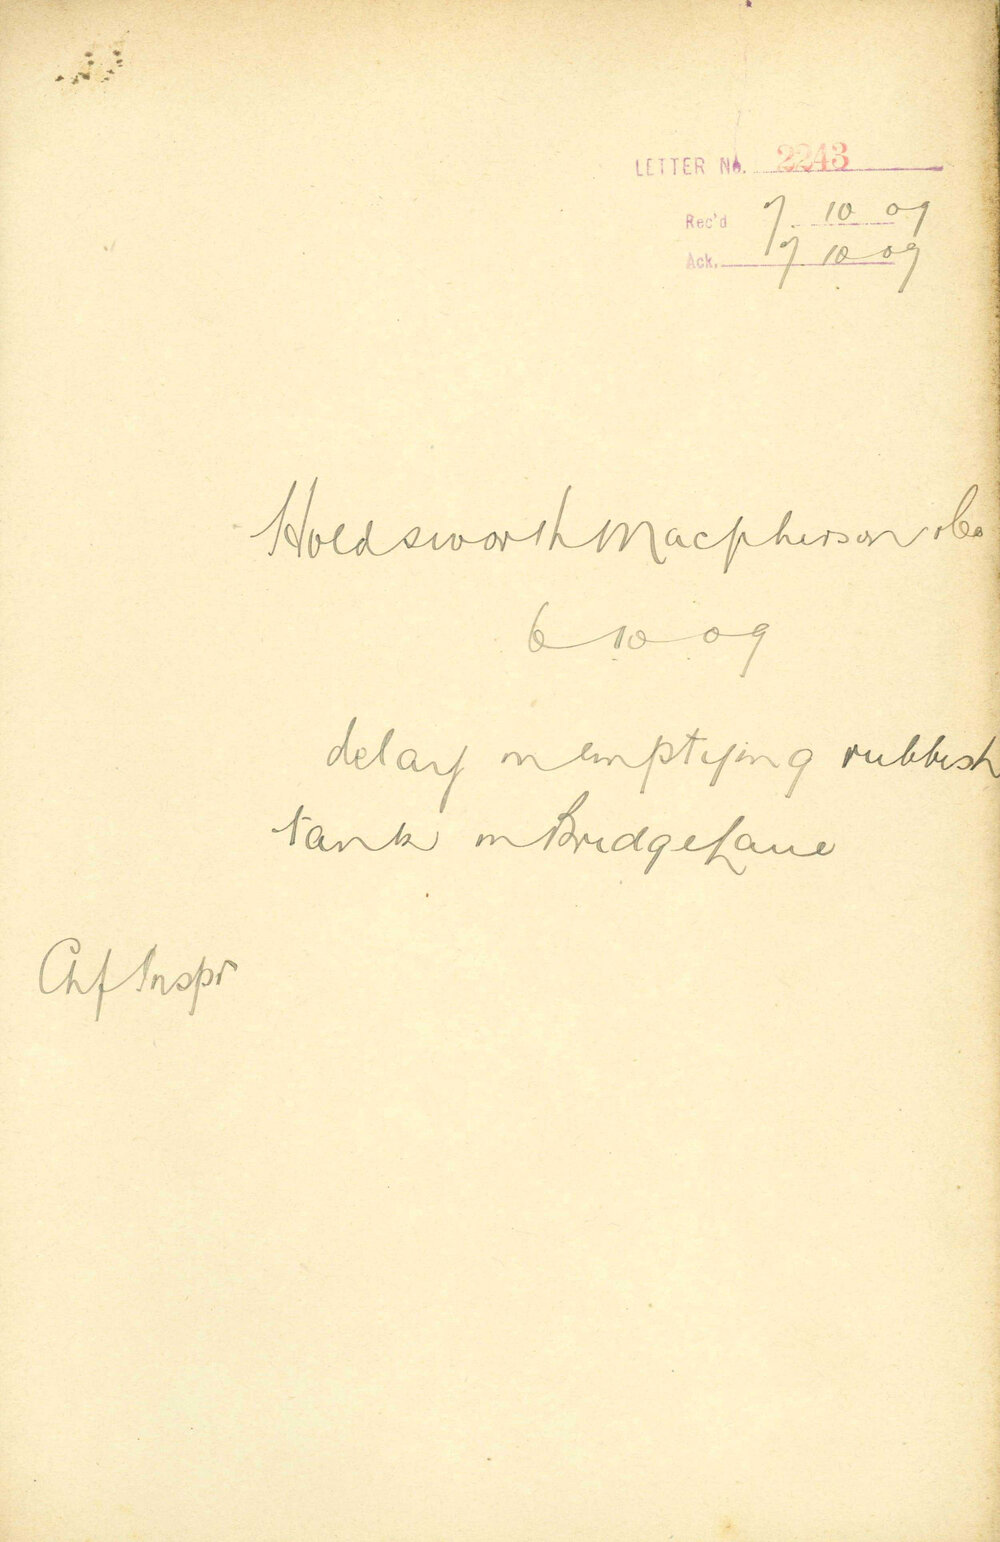 LETTER No. 2243
Rec'd 7 10 09
Ack. 7 10 09
Holdsworth Macpherson & Co
6 10 09
delay in emptying rubbish
tank in Bridge Lane
Chf Inspr